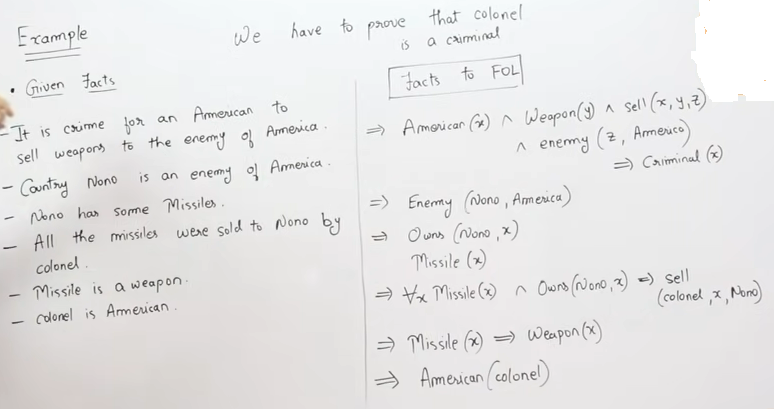 Example
We have to prove that colonel
is a criminal
• Given Facts
- It is crime for an American to
sell weapons to the enemy of America.
- Country Nono is an enemy of America.
- Nono has some Missiles.
- All the missiles were sold to Nono by
colonel.
- Missile is a weapon.
- colonel is American.
Facts to FOL
⇒ American (x) ∧ Weapon(y) ∧ sell (x, y, z)
∧ enemy (z, America)
⇒ Criminal (x)
⇒ Enemy (Nono, America)
⇒ Owns (Nono, x)
Missile (x)
⇒ ∀x Missile(x) ∧ Owns (Nono, x) ⇒ sell
(colonel, x, Nono)
⇒ Missile (x) ⇒ Weapon (x)
⇒ American (colonel)